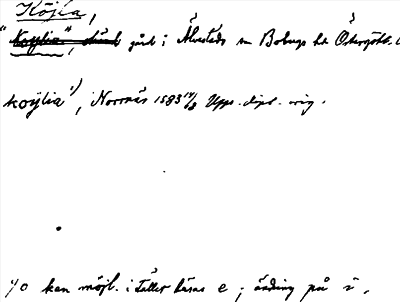 Köjla,
"Koÿlia", gård i Älvestads sn Bobergs hd Östergötl. l
koÿlia¹), Norrnäs 1583 14/8 Upps. dipl. orig.
1/0 kan möjl. i stället läsas e; ändring på i.